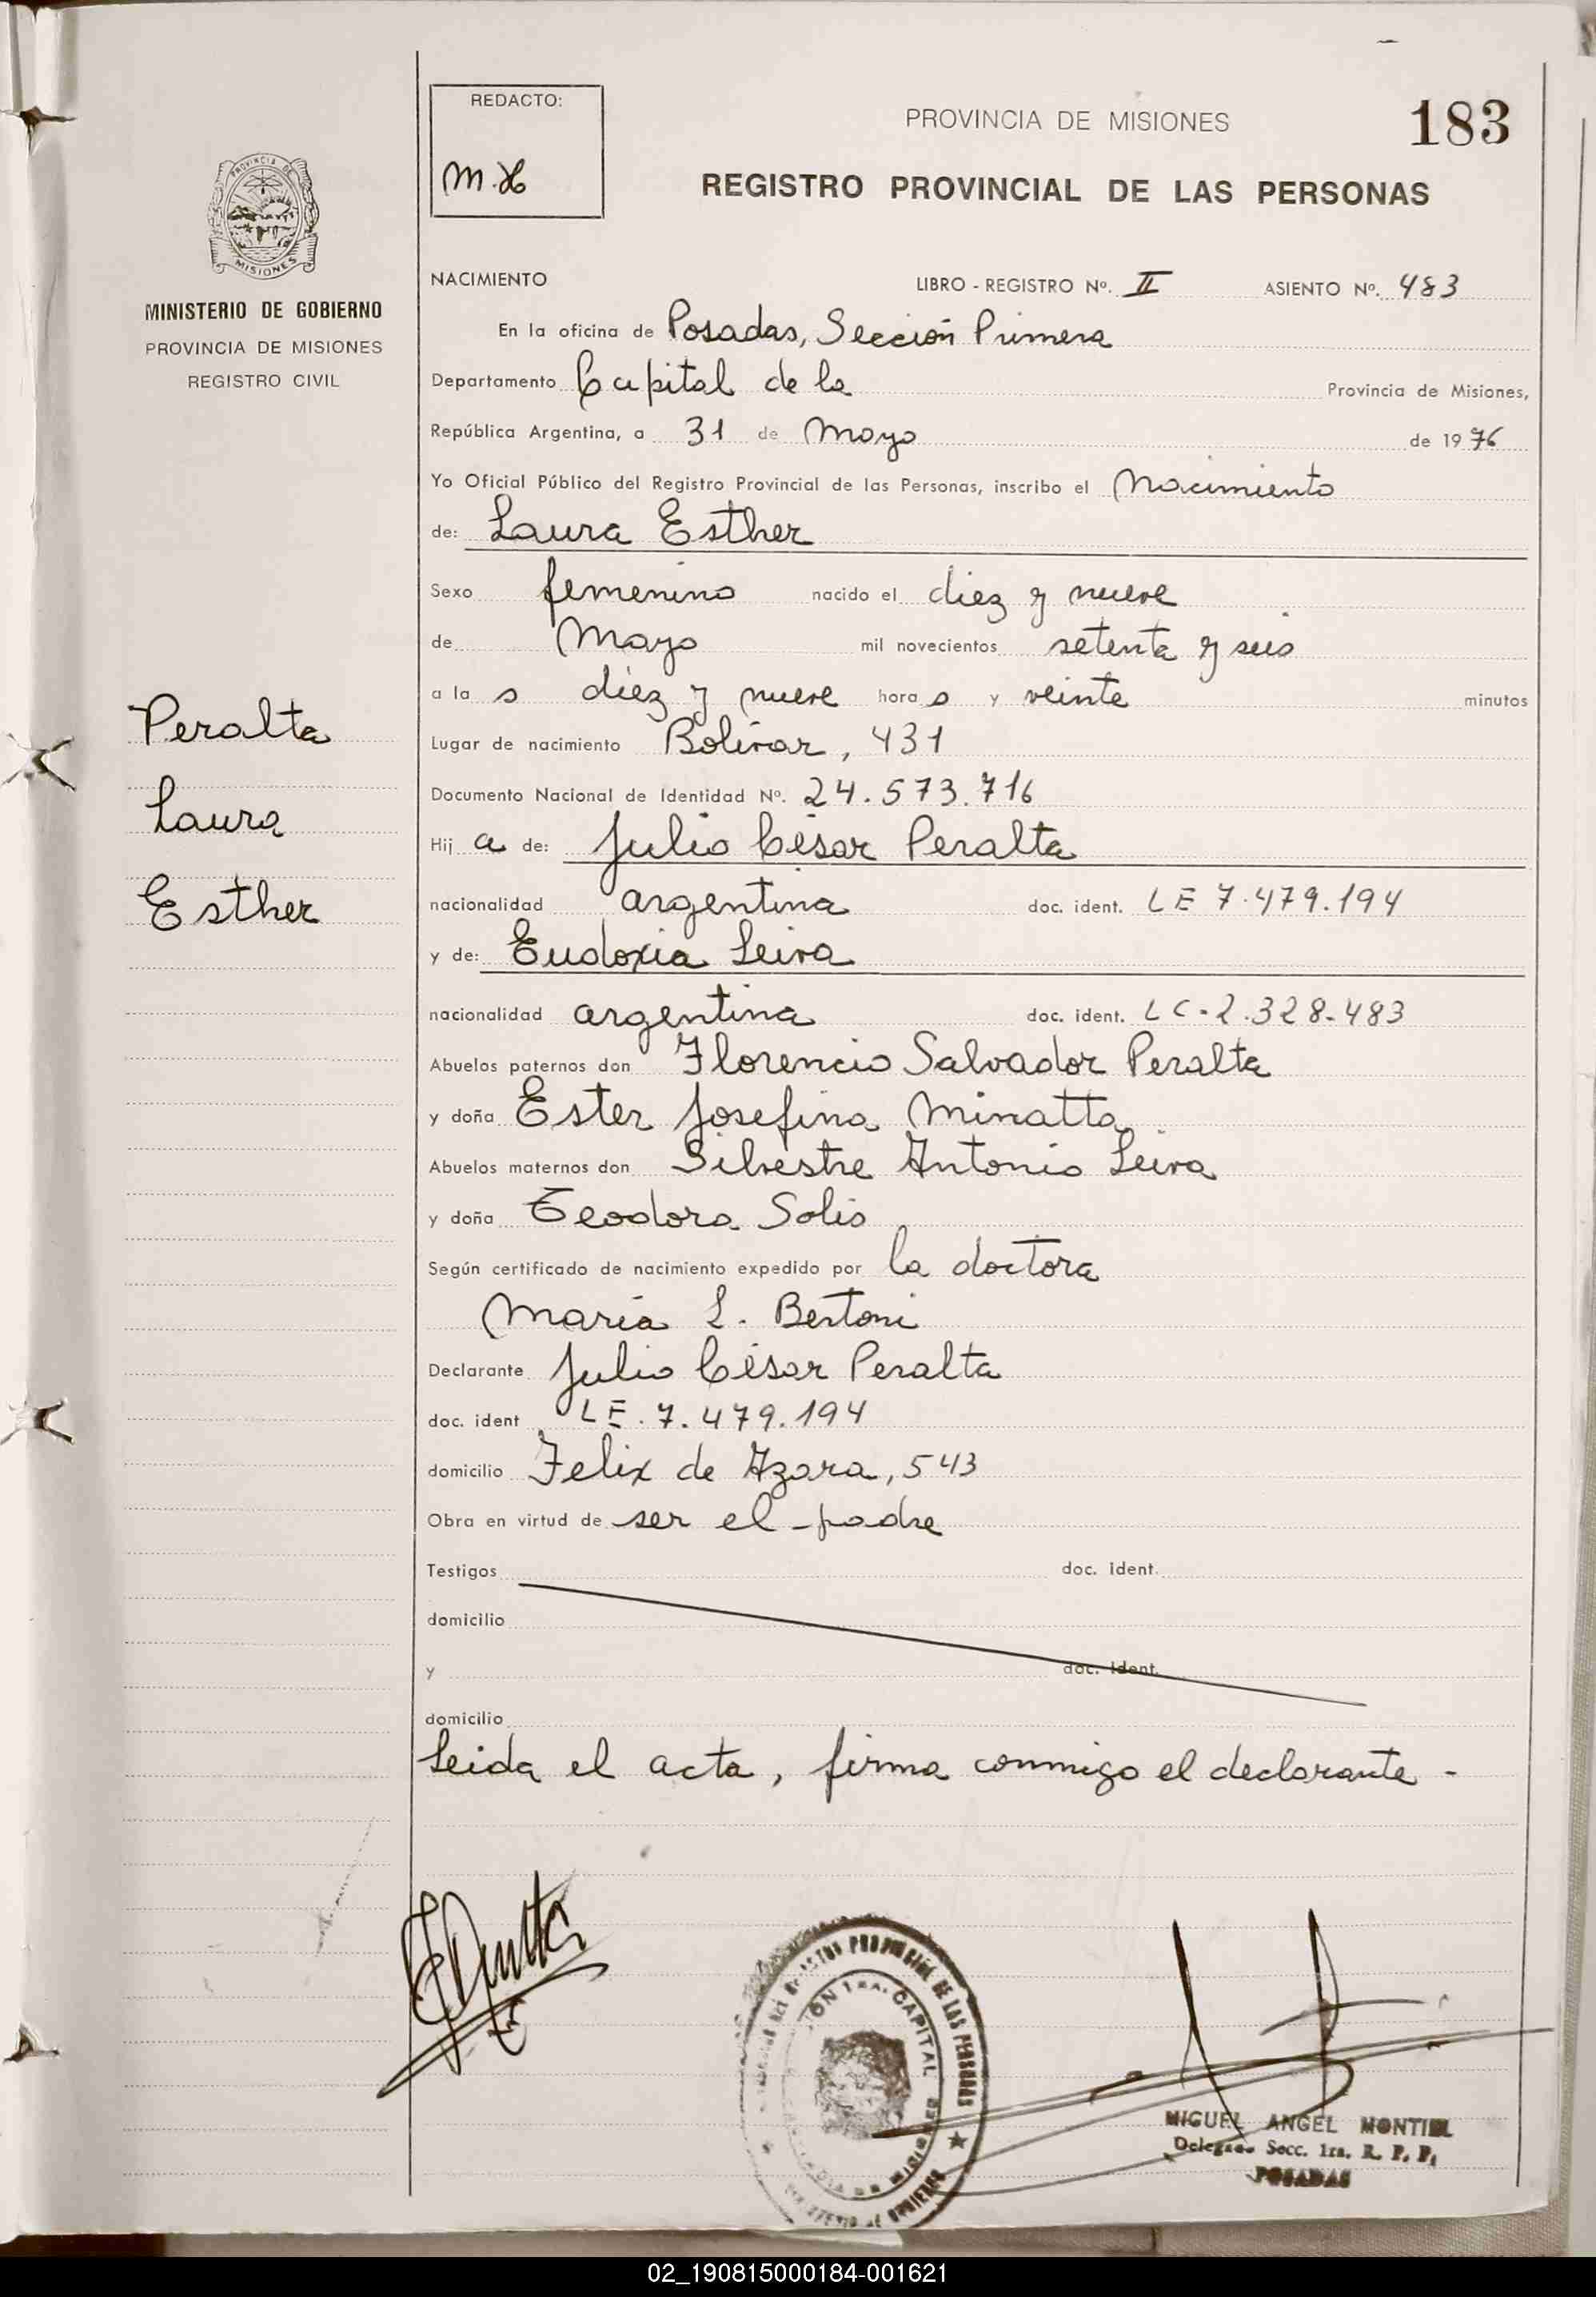 183
REDACTO:
M.H
PROVINCIA DE MISIONES
REGISTRO PROVINCIAL DE LAS PERSONAS
PROVINCIA DE
MISIONES
MINISTERIO DE GOBIERNO
PROVINCIA DE MISIONES
REGISTRO CIVIL
NACIMIENTO LIBRO - REGISTRO Nº. II ASIENTO Nº. 483
En la oficina de Posadas, Sección Primera
Departamento Capital de la Provincia de Misiones,
República Argentina, a 31 de Mayo de 1976
Yo Oficial Público del Registro Provincial de las Personas, inscribo el Nacimiento
de: Laura Esther
Sexo femenino nacido el diez y nueve
de Mayo mil novecientos setenta y seis
a la s diez y nueve hora s y veinte minutos
Peralta
Laura
Esther
Lugar de nacimiento Bolívar, 431
Documento Nacional de Identidad Nº. 24.573.716
Hij a de: Julio César Peralta
nacionalidad argentina doc. ident. LE 7.479.194
y de: Eudoxia Leiva
nacionalidad argentina doc. ident. LC-2.328-483
Abuelos paternos don Florencio Salvador Peralta
y doña Ester Josefina Minatta
Abuelos maternos don Silvestre Antonio Leiva
y doña Teodora Solis
Según certificado de nacimiento expedido por la doctora
María L. Bertoni
Declarante Julio César Peralta
doc. ident LE. 7.479.194
domicilio Felix de Azara, 543
Obra en virtud de ser el padre
Testigos doc. ident.
domicilio
y doc. ident.
domicilio
Leida el acta, firma conmigo el declarante -
REGISTRO PROVINCIAL DE LAS PERSONAS
CAPITAL
MISIONES
MIGUEL ANGEL MONTIEL
Delegado Secc. 1ra. R. P. P.
POSADAS
02_190815000184-001621